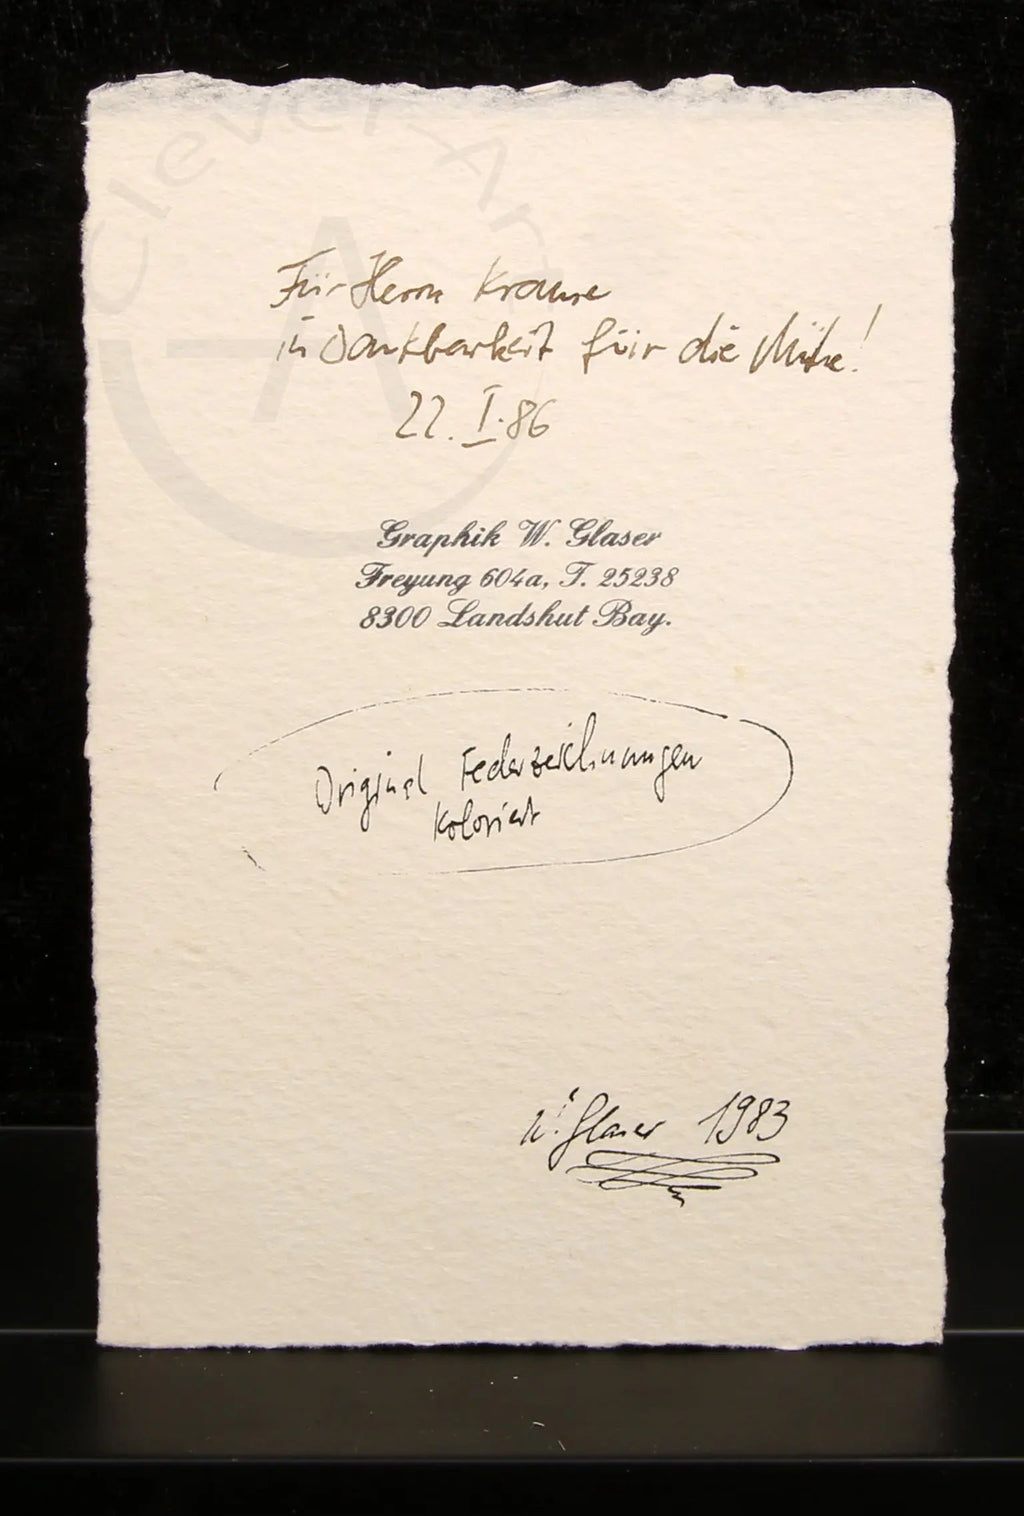 Clever-Art
Für Herrn Krause
in Dankbarkeit für die Mühe!
22. I. 86
Graphik W. Glaser
Freyung 604a, T. 25238
8300 Landshut Bay.
Original Federzeichnungen
koloriert
W. Glaser 1983